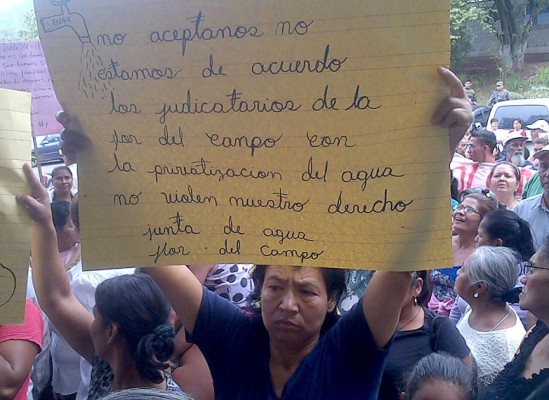 SANAA
no aceptanos no
estamos de acuerdo
los judicatarios de la
flor del campo con
la privatizacion del agua
no violen nuestro derecho
junta de agua
flor del campo